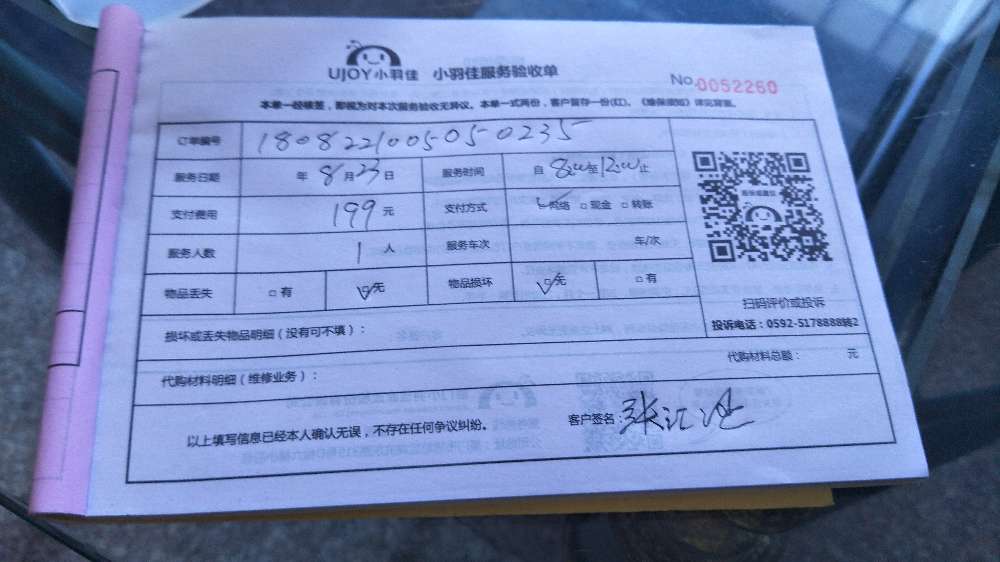 UJOY小羽佳 小羽佳服务验收单
No.0052260
本单一经核签,即视为对本次服务验收无异议。本单一式两份,客户留存一份(红)。《维保须知》详见背面。
订单编号 1808221005050235
服务日期 年 8月23日 服务时间 自 8:00至12:00止
支付费用 199元 支付方式 网络 □现金 □转账
服务人数 1人 服务车次 车/次
物品丢失 □有 □无 物品损坏 □无 □有
扫码评价或投诉
投诉电话:0592-5178888转2
损坏或丢失物品明细(没有可不填):
代购材料明细(维修业务): 代购材料总额: 元
以上填写信息已经本人确认无误,不存在任何争议纠纷。 客户签名:张汇